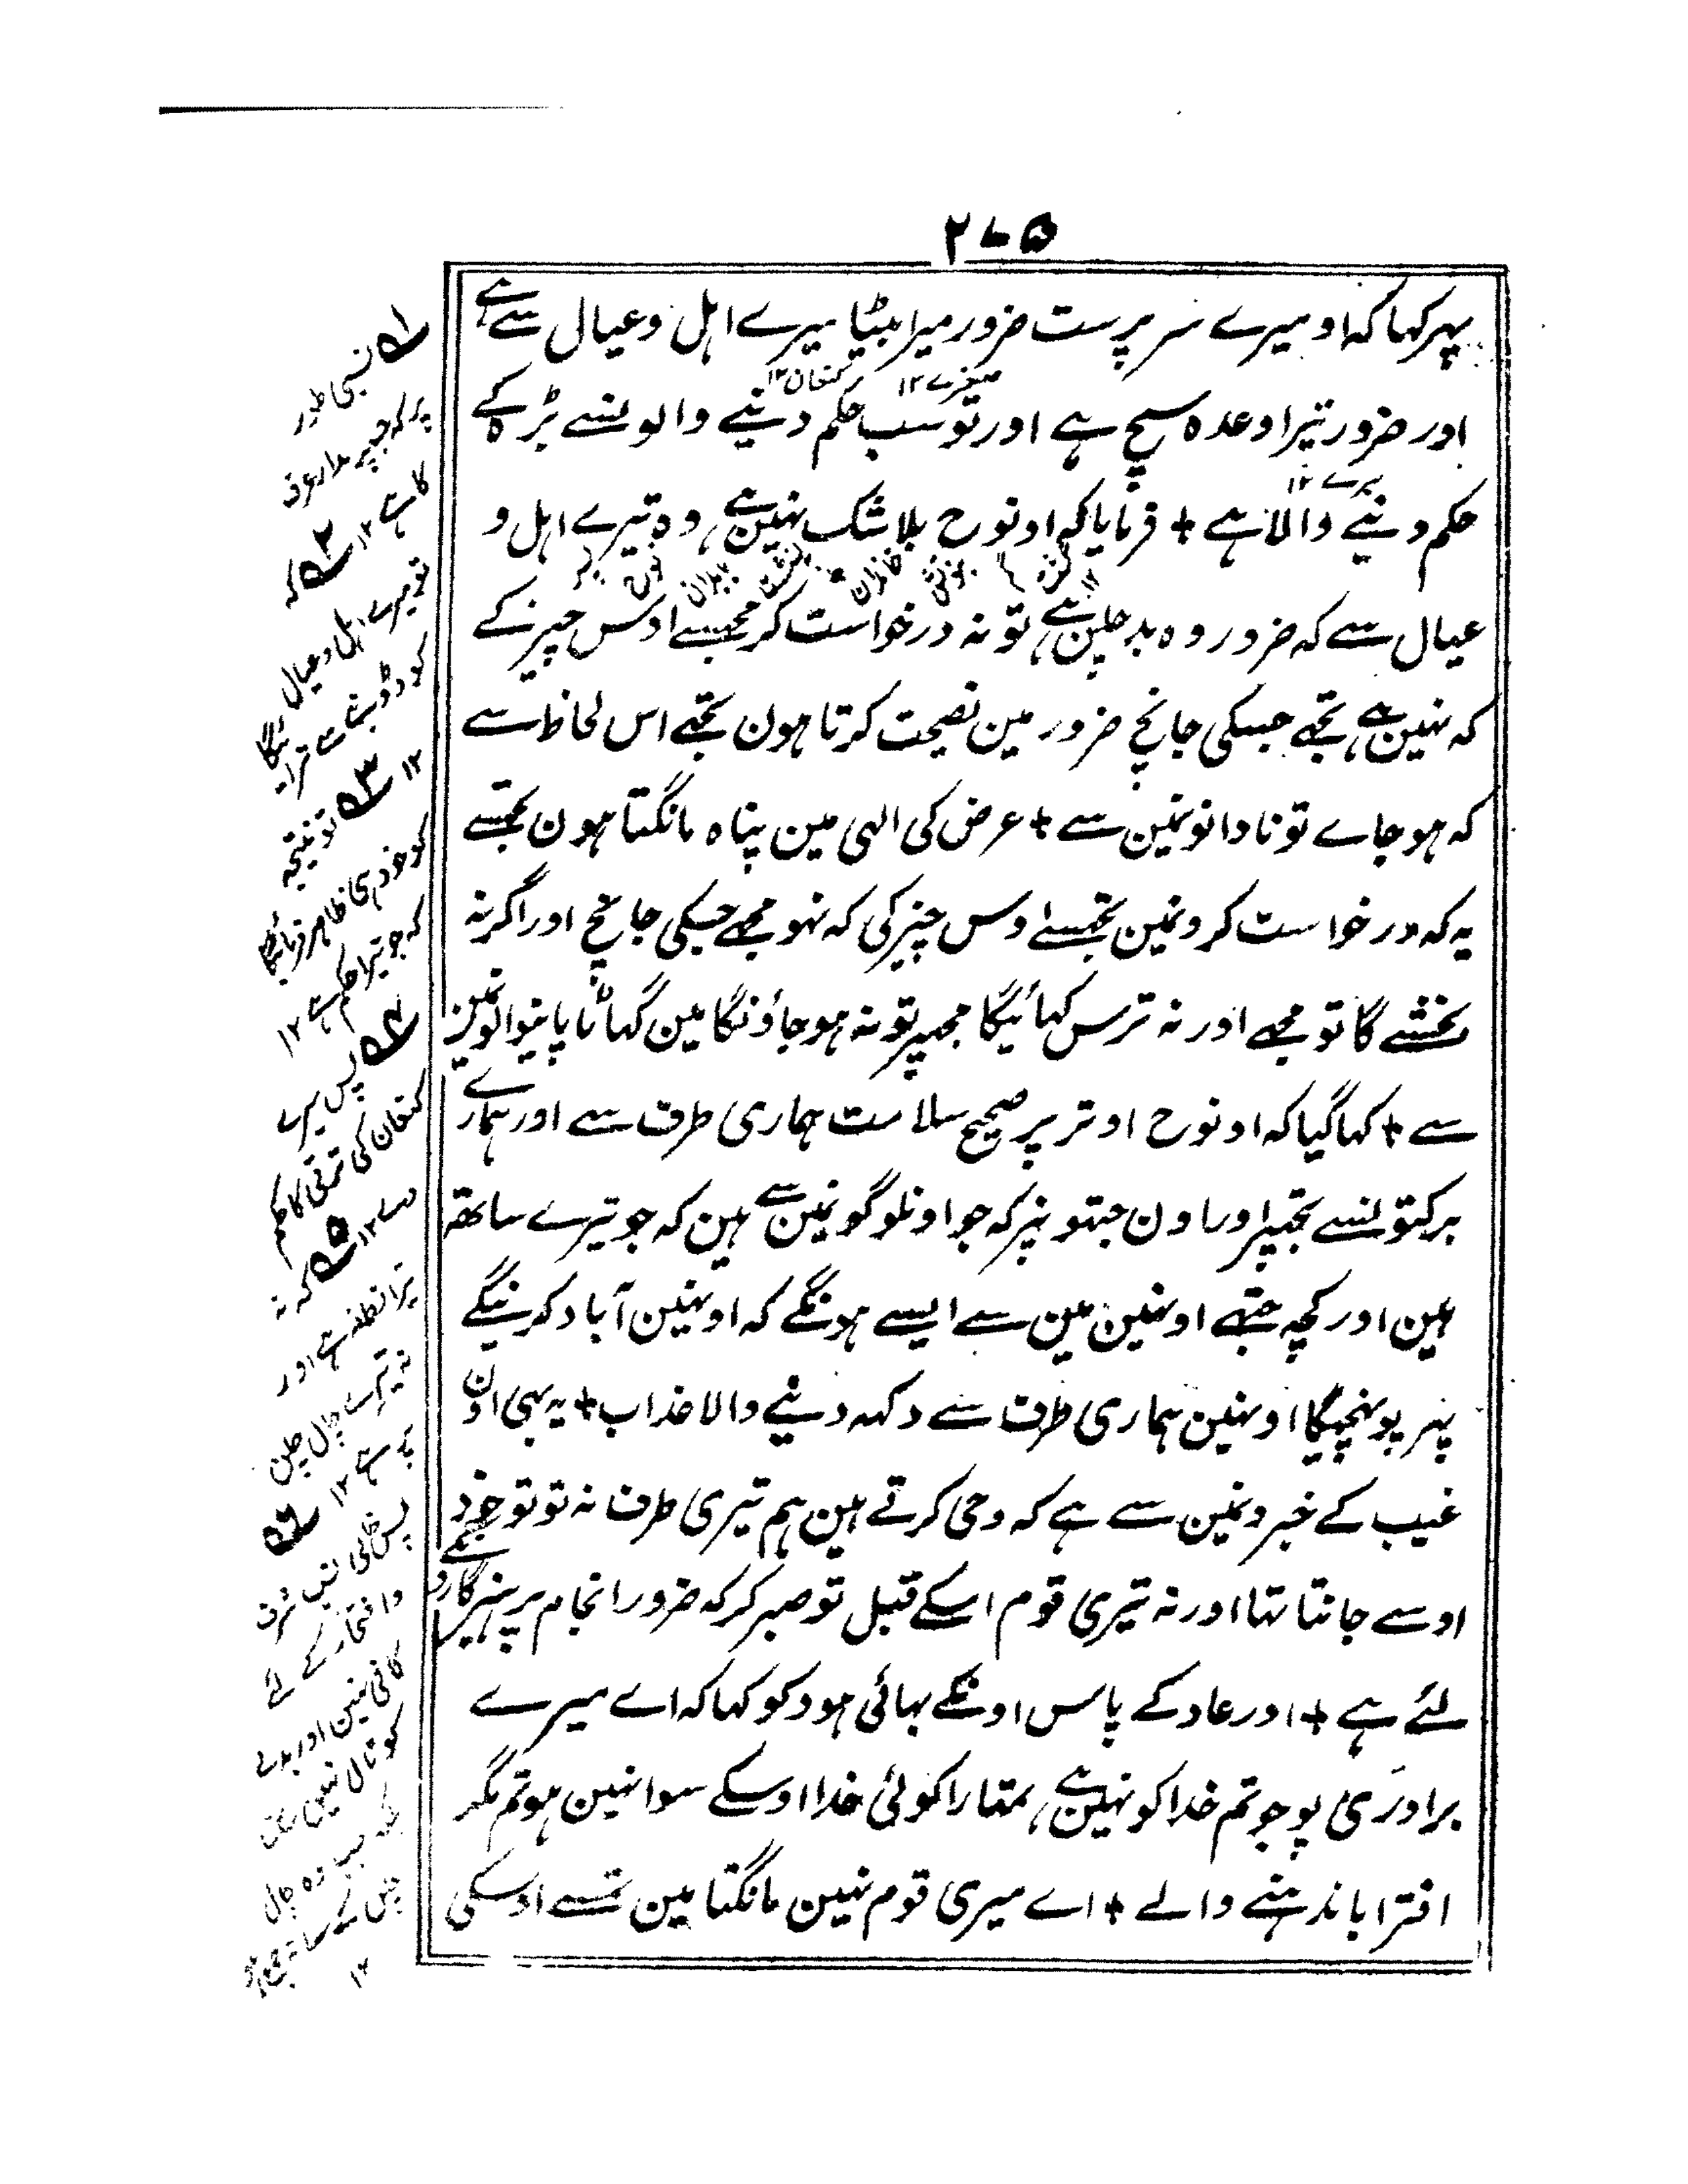 ۲۷۵
پہر کہا کہ او میرے سرپرست ضرور میرا بیٹا میرے اہل و عیال سے ہے
اور ضرور تیرا وعدہ سچ ہے اور تو سب حکم دینے والونسے بڑہ کے
حکم دینے والا ہے + فرمایا کہ او نوح بلا شک نہین ہے وہ تیرے اہل و
عیال سے کہ ضرور وہ بدچلن ہے تو نہ درخواست کر مجہسے اوس چیز کے
کہ نہین ہے تجہے جسکی جانچ ضرور مین نصیحت کرتا ہون تجہے اس لحاظ سے
کہ ہو جاے تو نادانونمین سے + عرض کی الہی مین پناہ مانگتا ہون تجہسے
یہ کہ درخواست کرونمین تجہسے اوس چیز کی کہ نہو مجہے جسکی جانچ اور اگر نہ
بخشے گا تو مجہے اور نہ ترس کہائیگا مجہپر تو نہ ہو جاؤنگا مین گہاٹا پانیوالونمین
سے + کہا گیا کہ او نوح اوتر پر صحیح سلامت ہماری طرف سے اور ہمارے
برکتونسے تجہپر اور اون جتہونپر کہ جو اونلوگونمین سے ہین کہ جو تیرے ساتہہ
ہین اور کچہ جتہے اونہین مین سے ایسے ہونگے کہ اونہین آباد کرینگے
پہر پونہچیگا اونہین ہماری طرف سے دکہہ دینے والا عذاب + یہ بہی اون
غیب کے خبرونمین سے ہے کہ وحی کرتے ہین ہم تیری طرف نہ تو تو خود
اوسے جانتا تہا اور نہ تیری قوم اسکے قبل تو صبر کر کہ ضرور انجام پرہیزگارونکے
لئے ہے + اور عاد کے پاس اونکے بہائی ہود کو کہا کہ اے میرے
برادری پوجو تم خدا کو نہین ہے تمہارا کوئی خدا اوسکے سوا نہین ہو تم مگر
افترا باندہنے والے + اے میری قوم نہین مانگتا مین تمسے اوسکی
۱ نسبی طور
پر کہ جسپر مدار عرف
کا ہے ۱۲ ۲ کہ
تو میرے اہل و عیال
کو ڈوبنے سے
۱۲ ۳ تو نتیجہ
کو خود ہی ظاہر فرمائیگا
کہ جو تیرا حکم ہے ۱۲
۴ پس میرے
کنعان کی ترقی کا حکم
دے ۱۲ ۵ کہ نہ
تیرا نطفہ ہے اور
نہ تیرے چال چلن
پر ہے ۱۲ ۶
پس خالی نسب شرف
و افتخار کے لئے
کافی نہین اور